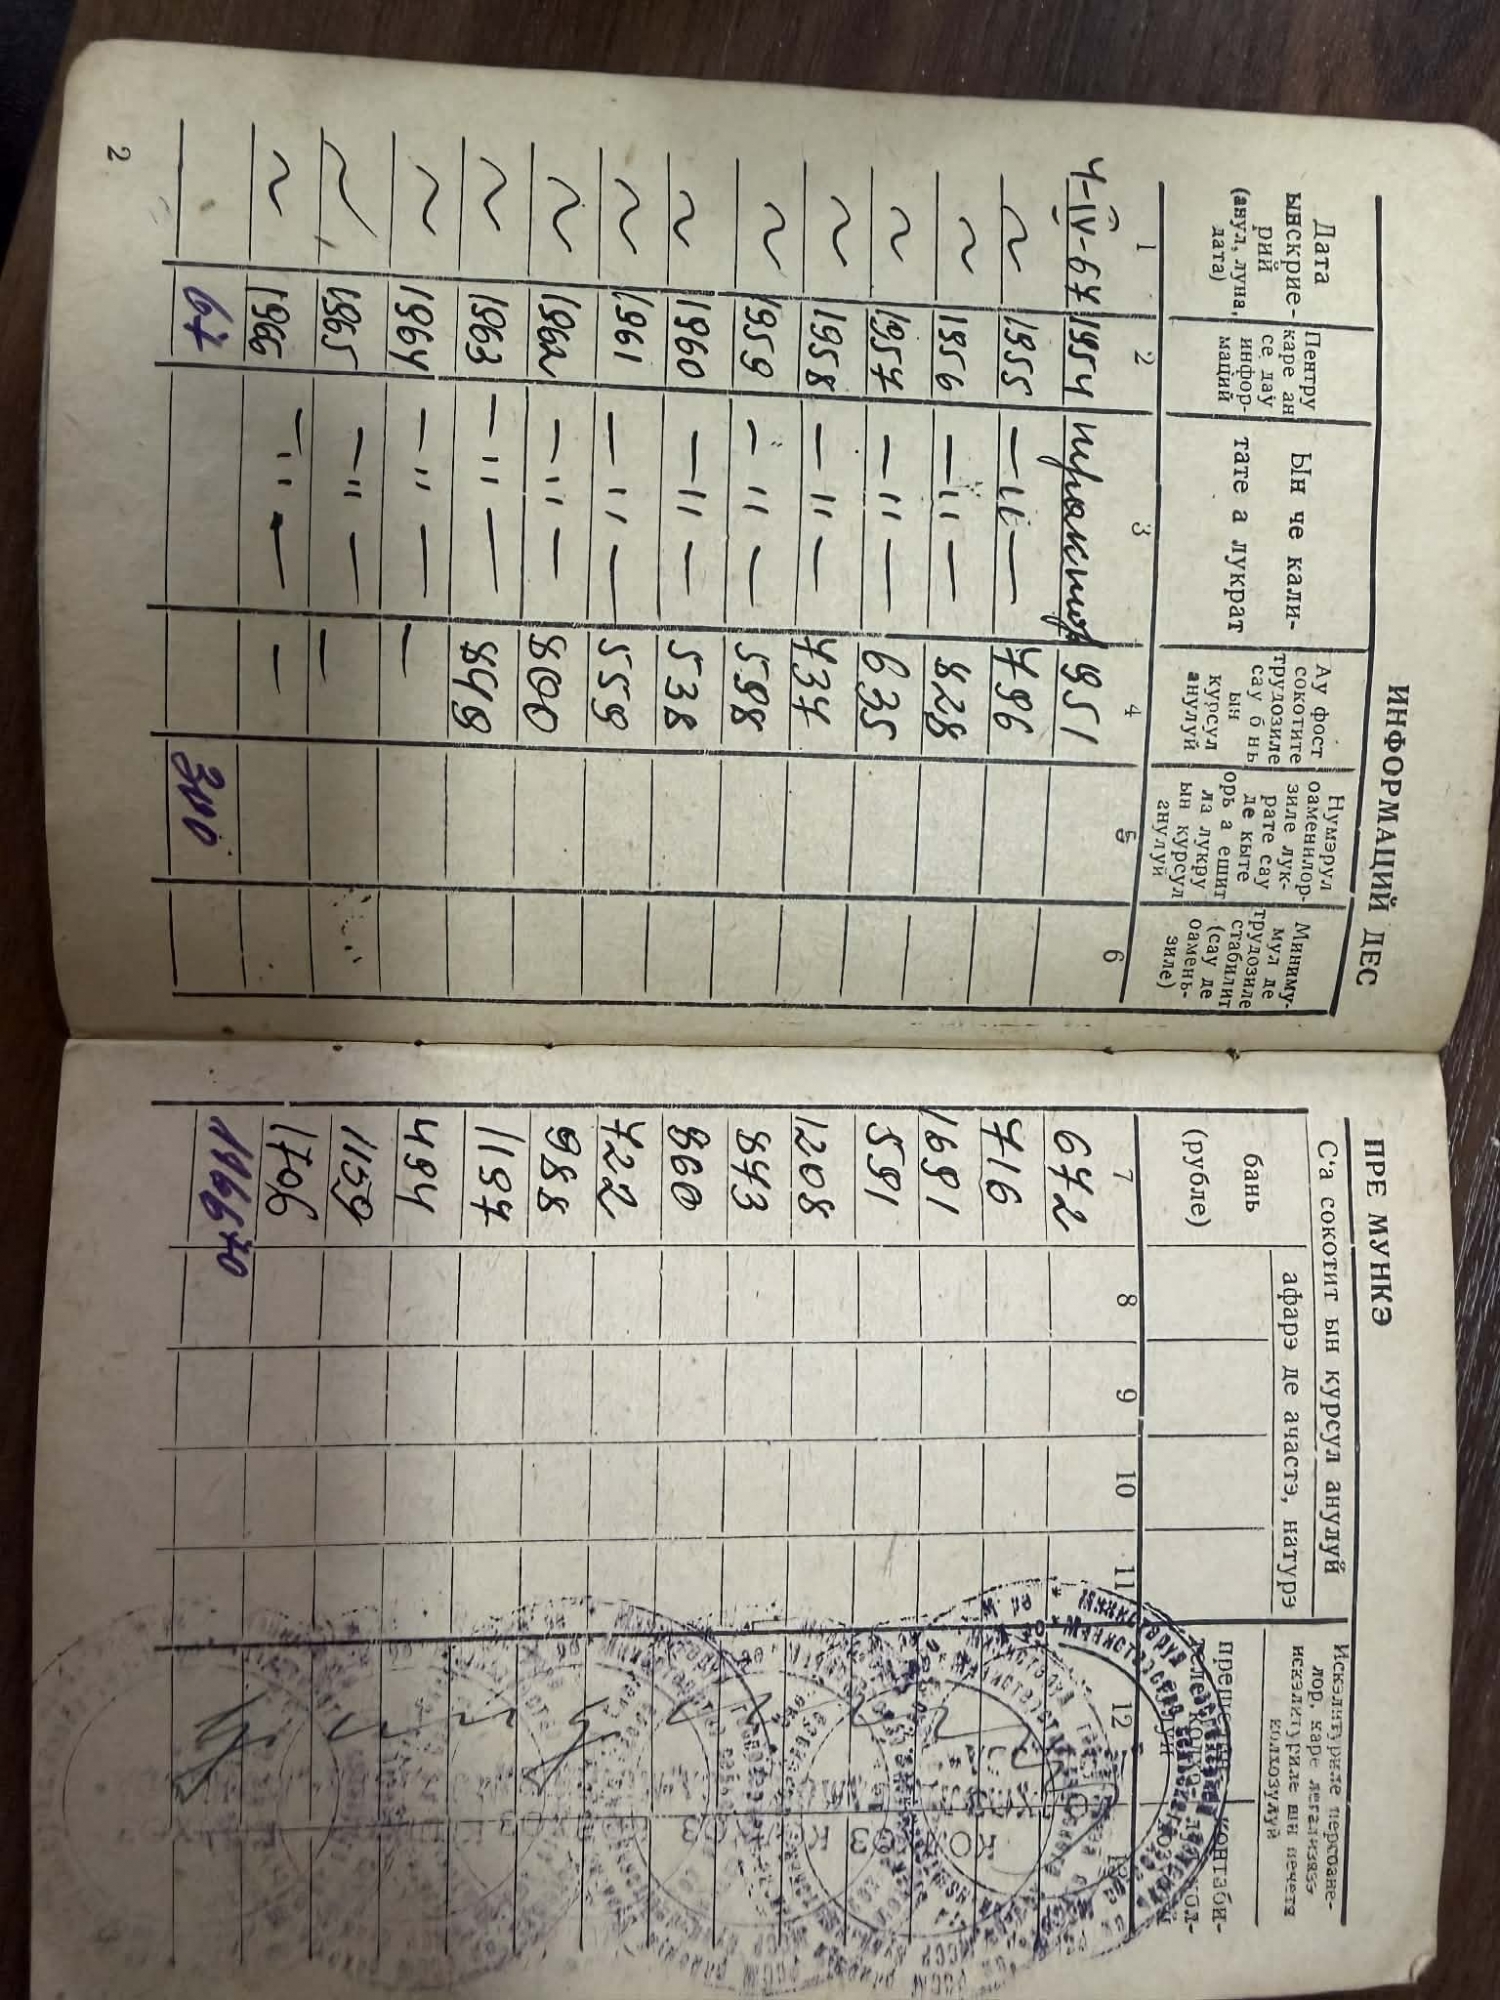 ИНФОРМАЦИЙ ДЕСПРЕ МУНКЭ
Дата ынскрие-рий (анул, луна, дата)
Пентру каре ан се дау информаций
Ын че кали-тате а лукрат
Ау фост сокотите трудозиле сау б нь ын курсул анулуй
Нумэрул оаменилор-зиле лук-рате сау де кыте орь а ешит ла лукру ын курсул анулуй
Миниму-мул де трудозиле стабилит (сау де оамень-зиле)
С'а сокотит ын курсул анулуй
бань (рубле)
афарэ де ачастэ, натурэ
Искэлитуриле персоане-лор, каре легализязэ искэлитуриле ши печетя колхозулуй
1 2 3 4 5 6 7 8 9 10 11 12
4-IV-67 1954 трактор 951 672
~ 1955 —〃— 796 716
~ 1956 —〃— 828 1691
~ 1957 —〃— 635 591
~ 1958 —〃— 737 1208
~ 1959 —〃— 598 843
~ 1960 —〃— 538 860
~ 1961 —〃— 559 722
~ 1962 —〃— 800 988
~ 1963 —〃— 849 1197
~ 1964 —〃— — 494
~ 1965 —〃— — 1159
~ 1966 —〃— — 1706
67 300 1166=70
2